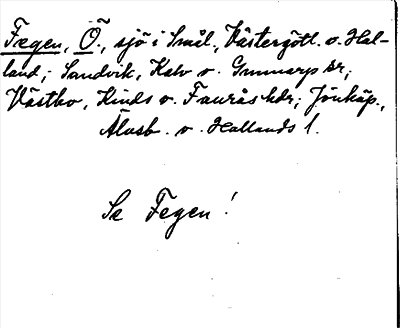 Fægen, Ö., sjö i Smål., Västergötl. o. Hal-
land; Sandvik, Kalv o. Gunnarp sr;
Västbo, Kinds o. Faurås hdr; Jönköp.,
Älvsb. o. Hallands l.
Se Fegen!